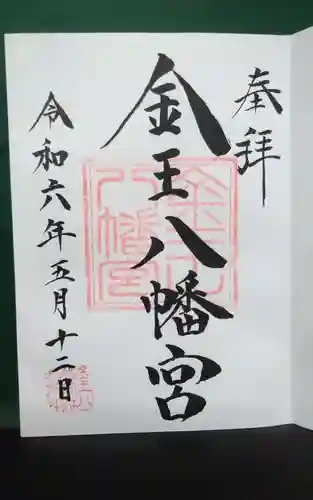 奉拝
金王八幡宮
令和六年五月十二日